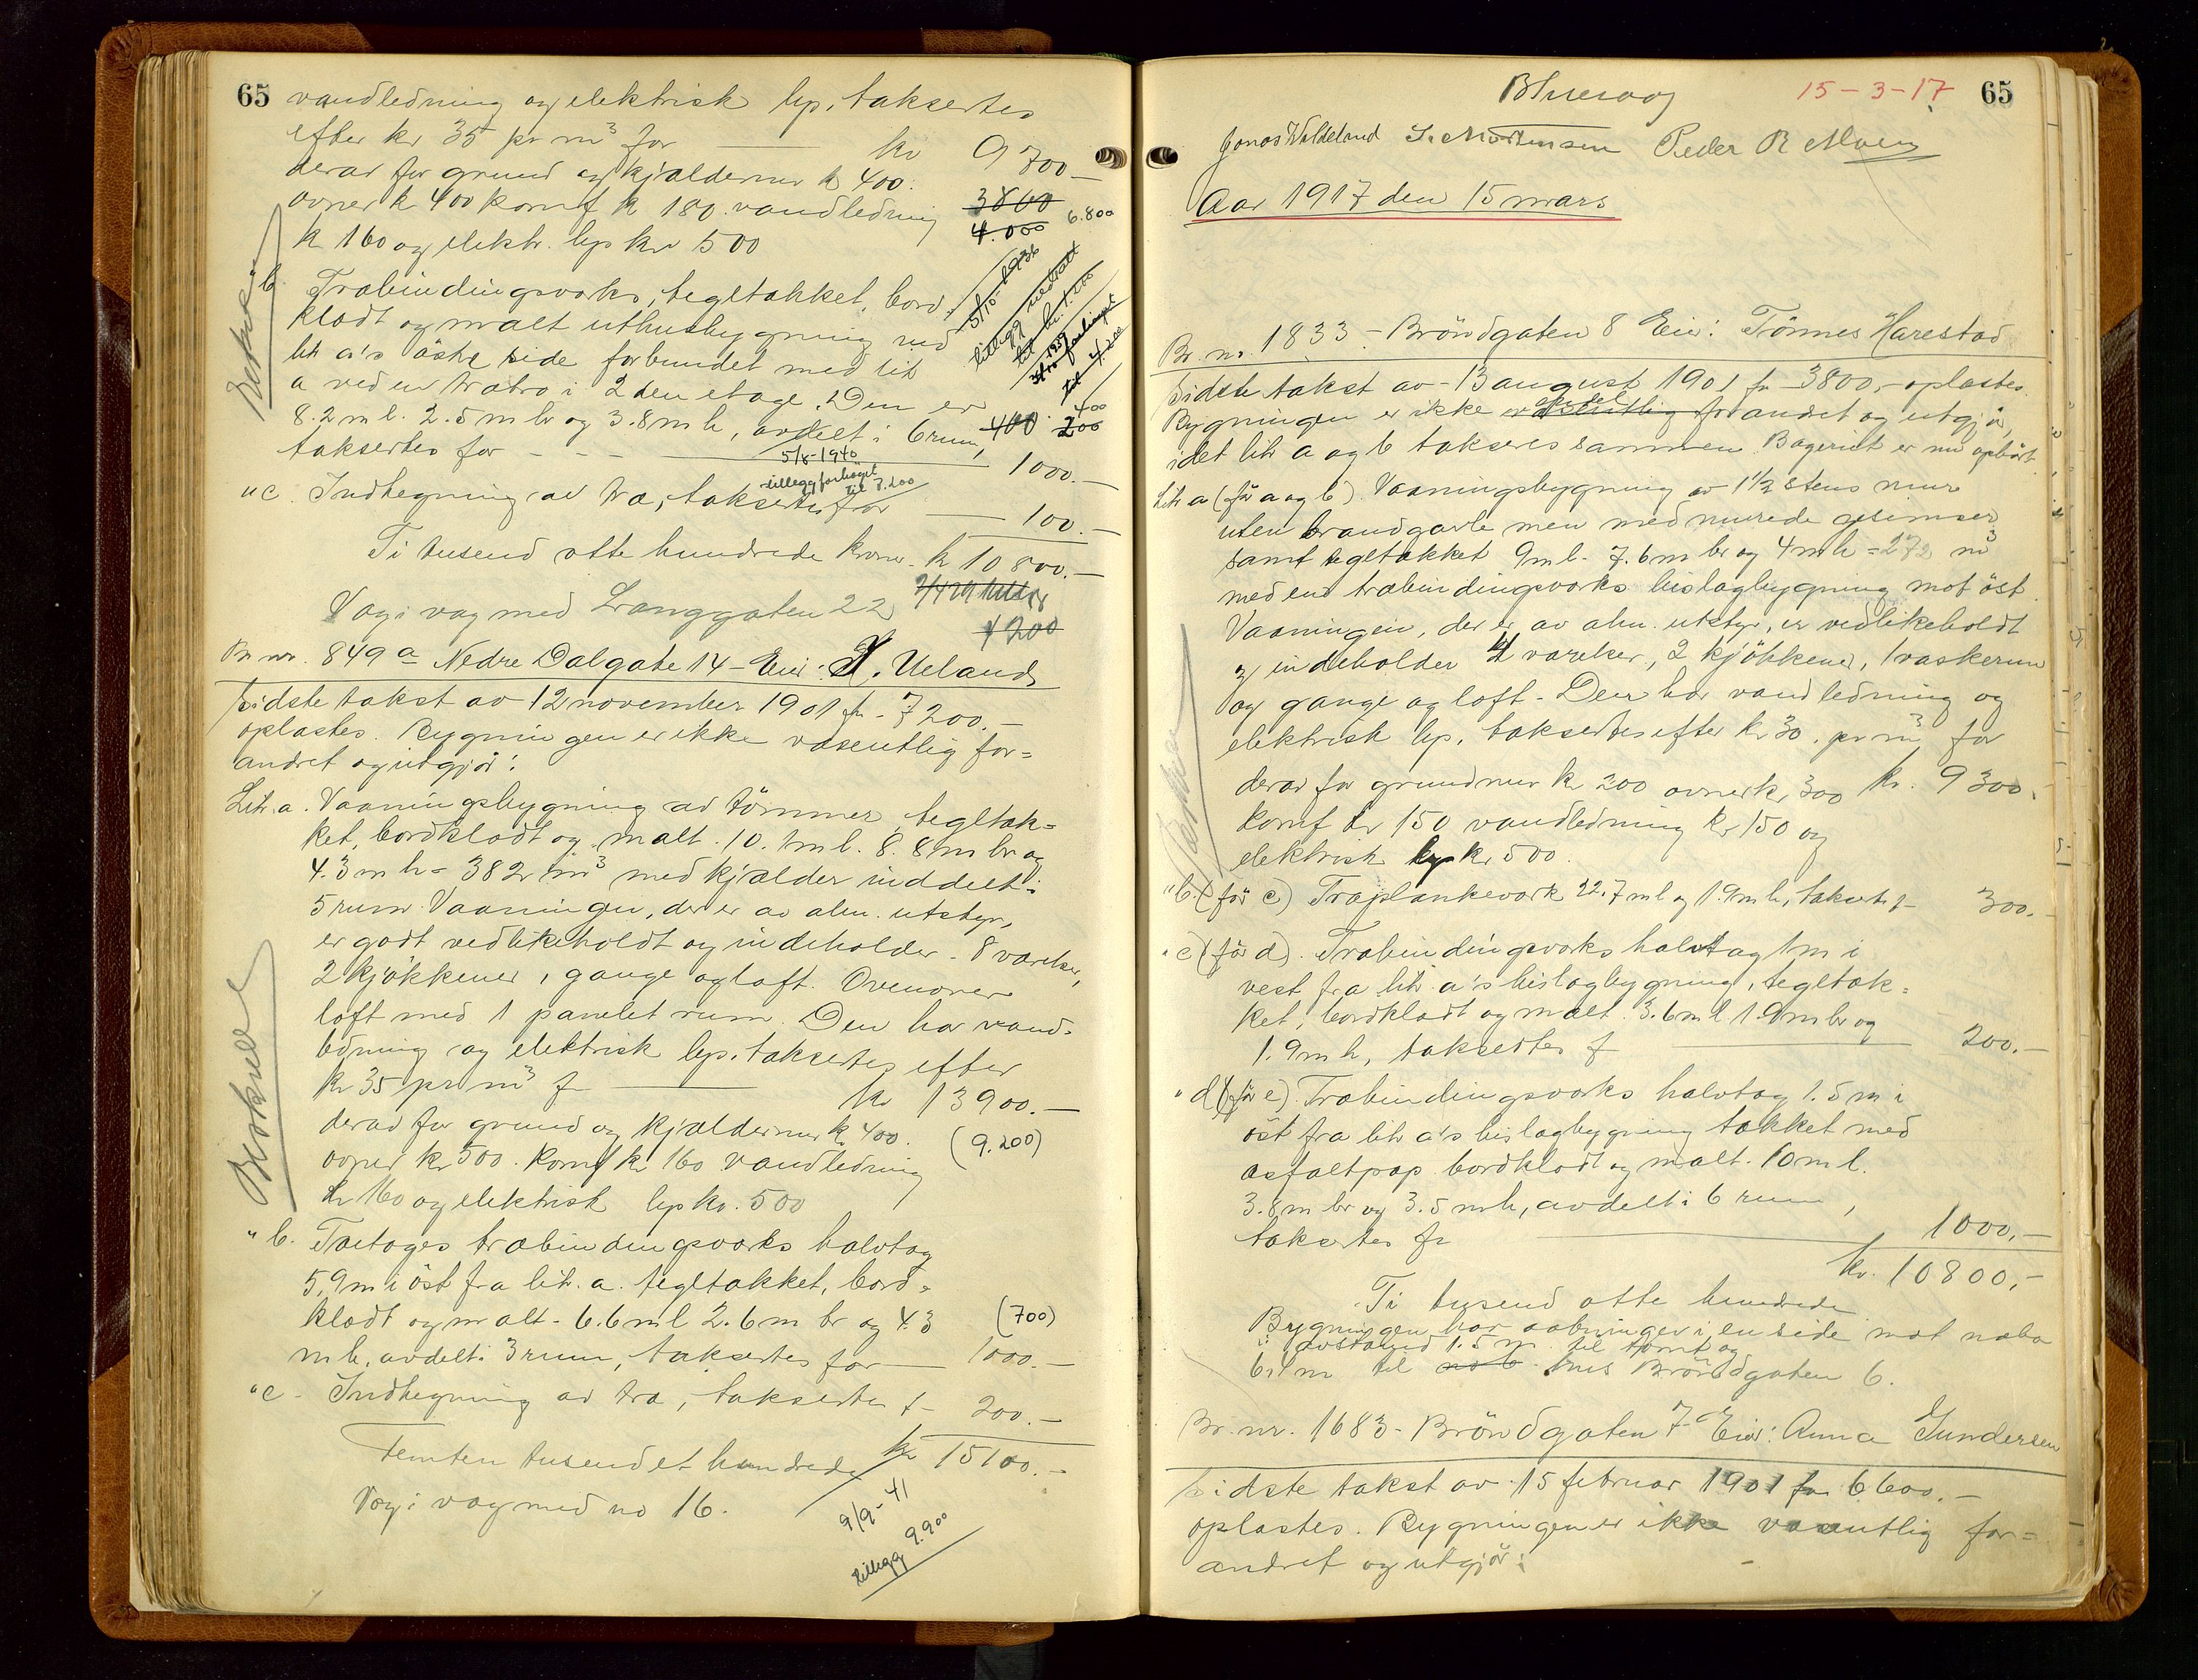 65
vandledning og elektrisk lys, taksertes
efter kr 35 pr m³ for kr 9700 —
derav for grund og kjældermur kr 400.
ovner kr 400 komf kr 180. vandledning 3860
kr 160 og elektr. lys kr 500 4.000 6.800
5/10-1936
tillegg nedsatt
til kr. 1.200
til 4/200
"b. Træbindingsverks, tegltækket, bord-
klædt og malt uthusbygning ved
litr a's östre side forbundet med litr
a ved en træbro i 2den etage. Den er
8.2 m l. 2.5 m br og 3.8 m h, avdelt i 6 rum, 400 200 400
taksertes for - - - 1000.—
5/8-1940
tillegg forhöiet
til 7.200
"c. Indhegning av træ, taksertes for — 100.—
Ti tusend otte hundrede kroner - kr 10 800.—
Væg i væg med Langgaten 22
7200
Br nr. 849 a Nedre Dalgate 14 - Eier: H. Ueland
Sidste takst av 12 november 1901 fr - 7200.—
oplæstes. Bygningen er ikke væsentlig for=
andret og utgjör:
Litr. a. Vaaningsbygning av tömmer, tegltæk=
ket, bordklædt og malt. 10.1 m l. 8.8 m br og
4.3 m h = 382 m³ med kjælder inddelt i
5 rum. Vaaningen, der er av alm. utstyr,
er godt vedlikeholdt og indeholder - 8 værelser,
2 kjökkener, gange og loft. Ovenover
loft med 1 panelet rum. Den har vand-
ledning og elektrisk lys. taksertes efter
kr 35 pr m³ f — kr 13900.—
derav for grund og kjældermur kr 400. (9.200)
ovner kr 500. komf kr 160 vandledning
kr 160 og elektrisk lys kr. 500
"b. Toetages træbindingsverks halvtag
5,9 m i öst fra litr. a. tegltækket, bord-
klædt og malt - 6.6 m l 2.6 m br og 4.3 (700)
m h. avdelt i 3 rum, taksertes for — 1000.—
"c - Indhegning av træ, taksertes f - 200.—
Femten tusend et hundrede kr 15100.—
Væg i væg med no 16.
9/9-41
tillegg 9.900
15-3-17 65
Jonas Waldeland S. Mortensen Peder R Moen
Aar 1917 den 15 mars
Br. nr. 1833 - Bröndgaten 8 Eier: Tönnes Harestad
Sidste takst av - 13 august 1901 fr 3800,- oplæstes.
Bygningen er ikke væsentlig forandret og utgjör,
idet litr a og b takseres sammen. Bageriet er nu ophört
Litr a (för a og b). Vaaningsbygning av 1½ stens mur
uten brandgavle men med murede gesimser
samt tegltækket 9 m l - 7.6 m br og 4 m h = 272 m³
med en træbindingsverks bislagbygning mot öst.
Vaaningen, der er av alm. utstyr, er vedlikeholdt
og indeholder 4 værelser, 2 kjökkener, 1 vaskerum
og gange og loft - Den har vandledning og
elektrisk lys. taksertes efter kr 30. pr m³ for
derav for grundmur kr 200 ovner kr 300 kr. 9300.
komf kr 150 vandledning kr 150 og
elektrisk lys kr 500.
"b. (för c) Træplankeverk 22.7 m l og 1.9 m h, taksertes f - 300.-
"c (för d). Træbindingsverks halvtag 1 m i
vest fra litr. a's bislagbygning, tegltæk=
ket, bordklædt og malt. 3.6 m l 1.9 m br og
1.9 m h, taksertes f — 200.—
"d (för e). Træbindingsverks halvtag 1.5 m i
öst fra litr a's bislagbygning tækket med
asfaltpap bordklædt og malt. 10 m l.
3.8 m br og 3.5 m h, avdelt i 6 rum,
taksertes fr — 1000.—
kr. 10800,-
Ti tusend otte hundrede
Bygningen har aabninger i en side mot nabo
i avstand 1.5 m til tomt og
6.1 m til hus Bröndgaten 6.
Br. nr. 1683 - Bröndgaten 7 Eier: Anna Gundersen
Sidste takst av 15 februar 1901 fr 6600.—
oplæstes. Bygningen er ikke væsentlig for=
andret og utgjör: